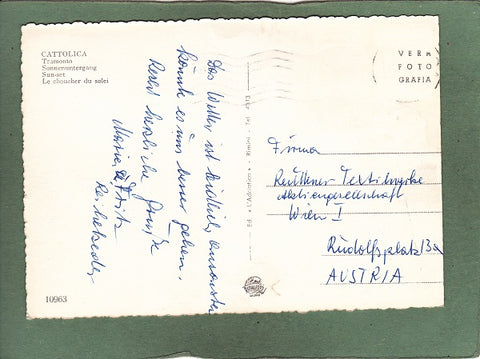 CATTOLICA
Tramonto
Sonnenuntergang
Sun-set
Le choucher du solei
Das Wetter ist leidlich, ansonsten
könnte es uns besser gehen.
Recht herzliche Grüße
Maria & Fritz
10963
Ediz. « L'Adriatica » - Rimini - Tel.
VERA
FOTO
GRAFIA
Firma
Textilwerke
Aktiengesellschaft
Wien I
Rudolfsplatz 13a
AUSTRIA